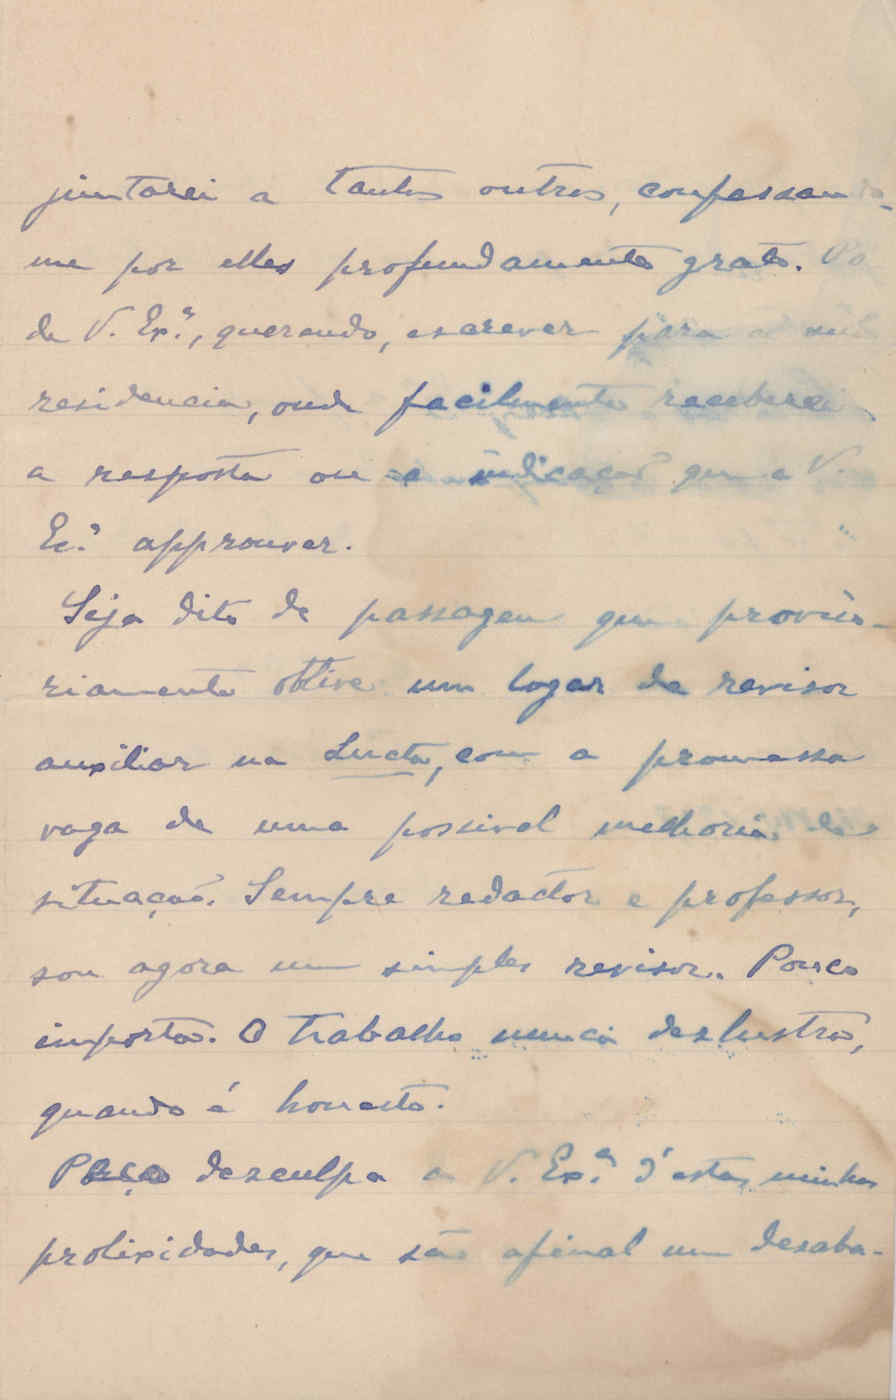 juntarei a tantos outros, confessando-
me por elles profundamente grato. Po
de V. Ex.ª, querendo, escrever para a
residencia, onde facilmente receberei
a resposta ou a indicação que a V.
Ex.ª approuver.
Seja dito de passagem que proviso-
riamente obtive um logar de revisor
auxiliar na Lucta, com a promessa
vaga de uma possivel melhoria de
situação. Sempre redactor e professor,
sou agora um simples revisor. Pouco
importa. O trabalho nunca deslustra,
quando é honesto.
Peço desculpa a V. Ex.ª d'estas minhas
prolixidades, que são afinal um desaba-